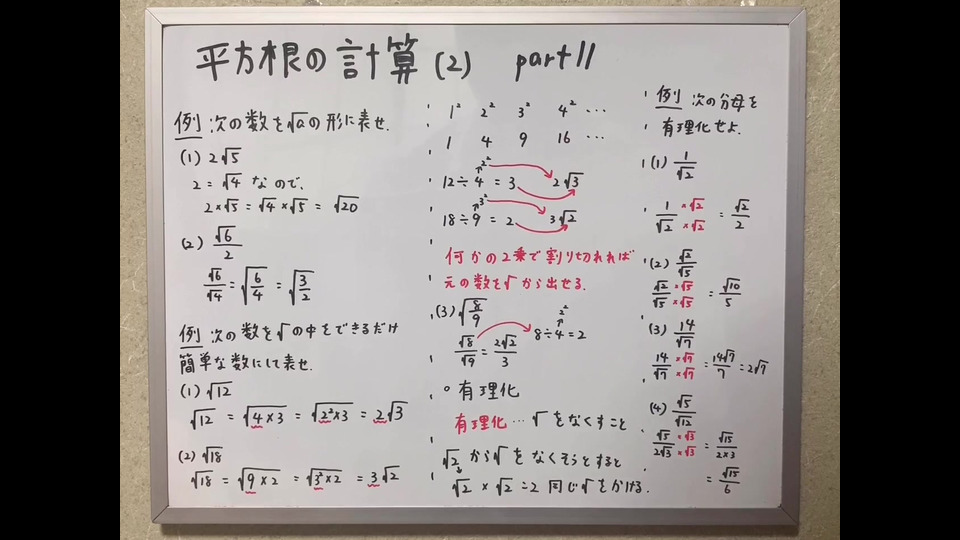 平方根の計算(2) part11
例 次の数を√aの形に表せ.
(1) 2√5
2=√4 なので、
2×√5=√4×√5=√20
(2) √6/2
√6/√4=√(6/4)=√(3/2)
例 次の数を√の中をできるだけ
簡単な数にして表せ.
(1) √12
√12 = √(4×3) = √(2²×3) = 2√3
(2) √18
√18 = √(9×2) = √(3²×2) = 3√2
1² 2² 3² 4² …
1 4 9 16 …
2²
12÷4=3 2√3
3²
18÷9=2 3√2
何かの2乗で割り切れれば
元の数を√から出せる.
(3) √(8/9)
2²
8÷4=2
√8/√9=2√2/3
○有理化
有理化…√をなくすこと
√2から√をなくそうとすると
√2×√2=2 同じ√をかける.
例 次の分母を
有理化せよ.
(1) 1/√2
1/√2 ×√2/×√2 = √2/2
(2) √2/√5
√2/√5 ×√5/×√5 = √10/5
(3) 14/√7
14/√7 ×√7/×√7 = 14√7/7 = 2√7
(4) √5/√12
√5/2√3 ×√3/×√3 = √15/2×3
= √15/6